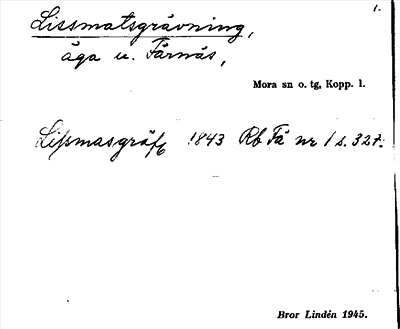 1.
Lissmatsgrävning,
äga u. Färnäs,
Mora sn o. tg, Kopp. l.
Lissmasgräfg 1843 Rb Fä nr 1 s. 327.
Bror Lindén 1945.